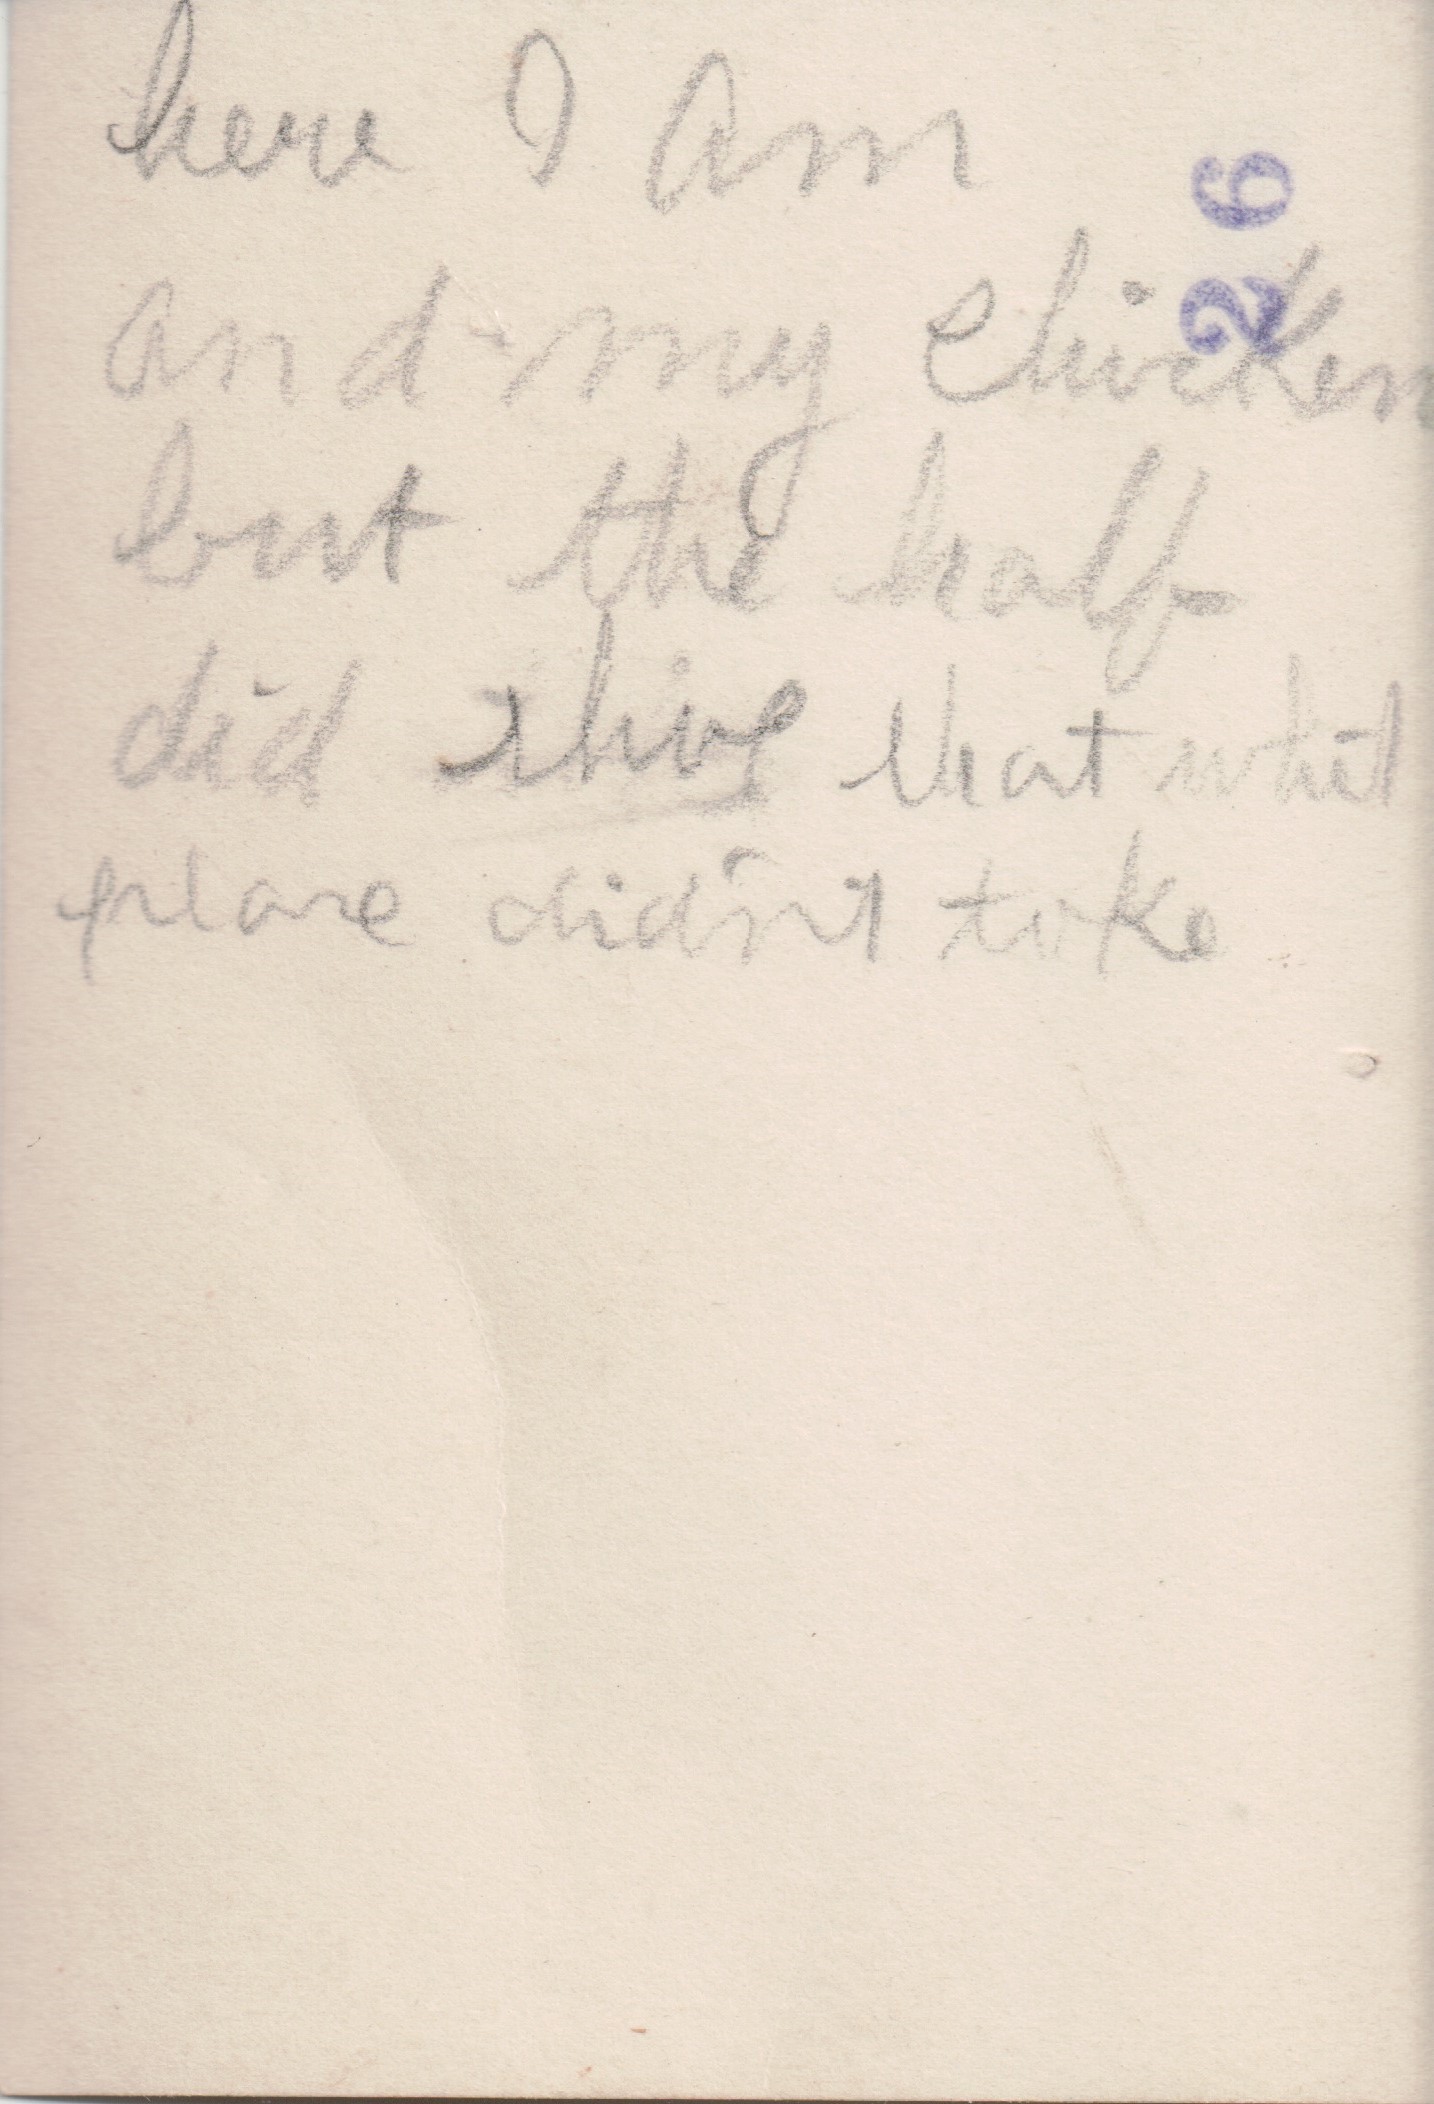 here I am
and my chicken
but the half
did that whit
place didn't take
26